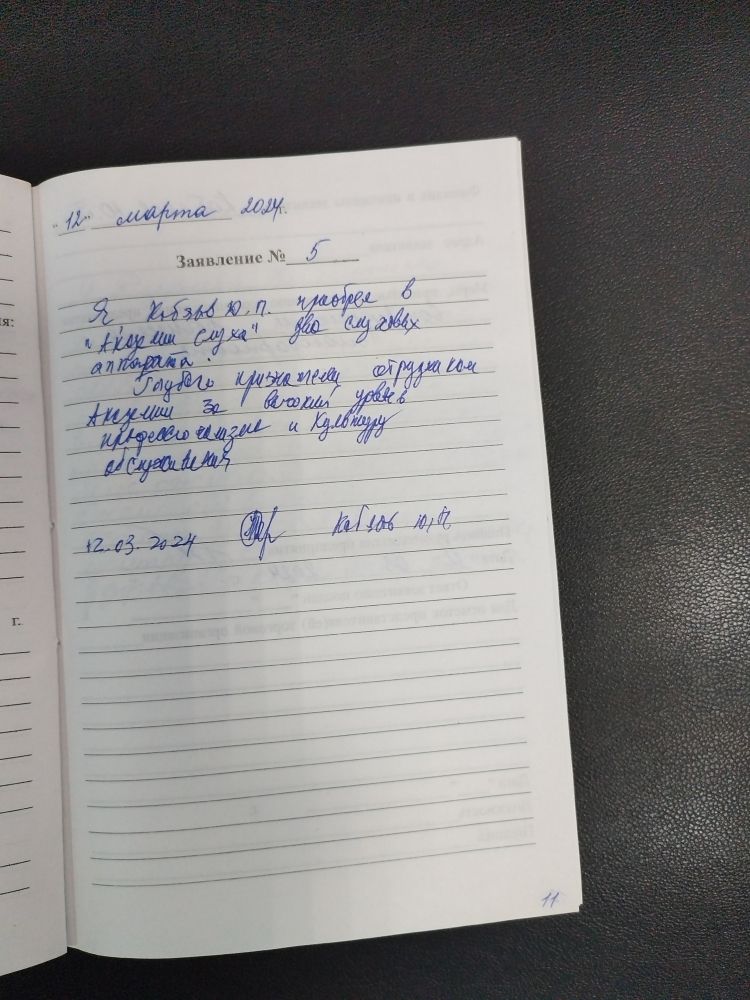 "12" марта 2024г.
Заявление № 5
Я Кобзев Ю.П. приобрел в
"Академии слуха" два слуховых
аппарата.
Глубоко сотрудникам
Академии за высокий уровень
профессионализма и культуру
обслуживания
12.03.2024 Кобзев Ю.П.
11
г.